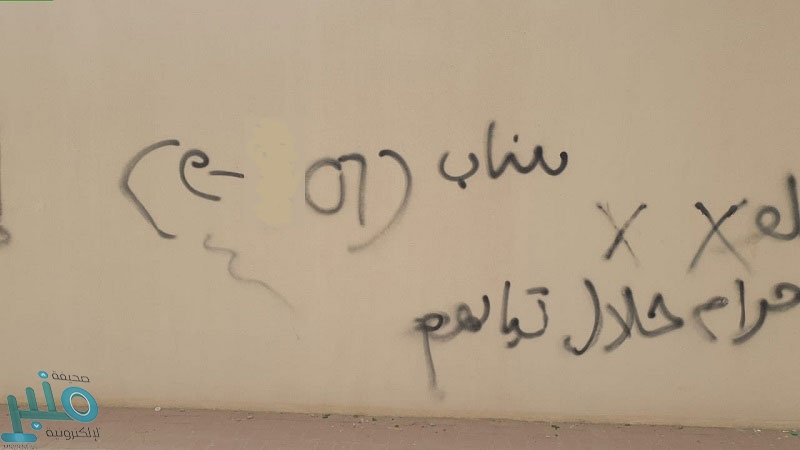 سناب (07 -e)
X X
حرام حلال تبالهم
صحيفة
منبر
الإلكترونية